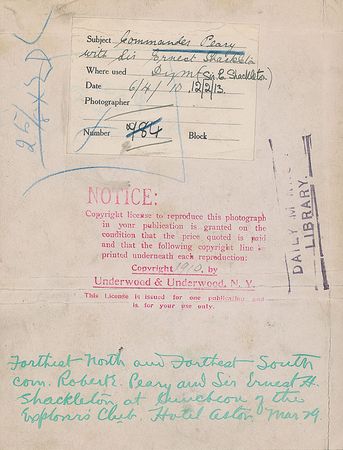 Subject Commander Peary
with Sir Ernest Shackleto
Where used Dym (Sir E. Shackleton)
Date 6/4/10 12/2/13.
Photographer
Number 484 Block
NOTICE:
Copyright license to reproduce this photograph
in your publication is granted on the
condition that the price quoted is paid
and that the following copyright line is
printed underneath each reproduction:
Copyright 1910, by
Underwood & Underwood, N. Y.
This License is issued for one publication and
is for your use only.
DAILY M
LIBRARY.
Farthest North and Farthest South
com. Robert E. Peary and Sir Ernest H.
Shackleton, at Luncheon of the
Explorers Club. Hotel Astor. Mar 29.